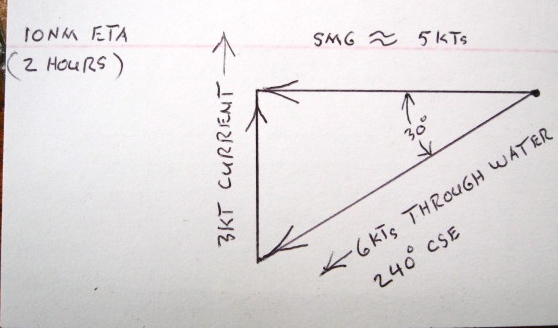 10NM ETA
(2 HOURS)
SMG ≈ 5KTs
3KT CURRENT
30°
6KTs THROUGH WATER
240° CSE